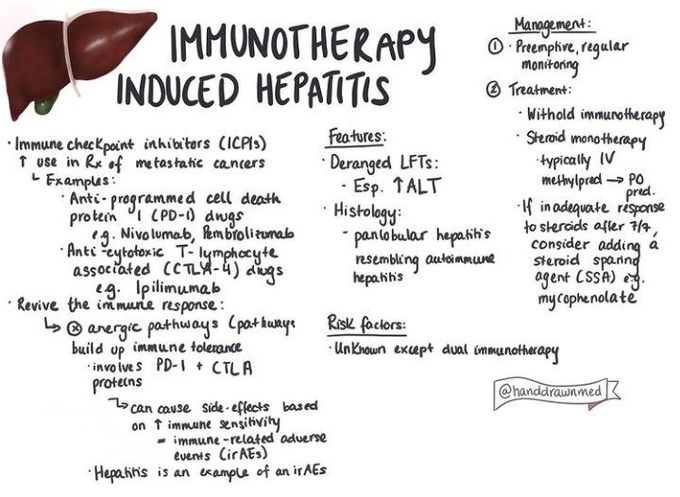 IMMUNOTHERAPY
INDUCED HEPATITIS
· Immune checkpoint inhibitors (ICPIs)
↑ use in Rx of metastatic cancers
↳ Examples:
· Anti-programmed cell death
protein 1 (PD-1) drugs
e.g. Nivolumab, Pembrolizumab
· Anti-cytotoxic T-lymphocyte
associated (CTLA-4) drugs
e.g. Ipilimumab
· Revive the immune response:
↳ ⊗ anergic pathways (pathways
build up immune tolerance
· involves PD-1 + CTLA
proteins
↳ can cause side-effects based
on ↑ immune sensitivity
= immune-related adverse
events (irAEs)
· Hepatitis is an example of an irAEs
Features:
· Deranged LFTs:
- Esp. ↑ALT
· Histology:
- panlobular hepatitis
resembling autoimmune
hepatitis
Risk factors:
· Unknown except dual immunotherapy
Management:
① · Preemptive, regular
monitoring
② Treatment:
· Withold immunotherapy
· Steroid monotherapy
· typically IV
methylpred → PO
pred.
· If inadequate response
to steroids after 7/7,
consider adding a
steroid sparing
agent (SSA) e.g.
mycophenolate
@handdrawnmed